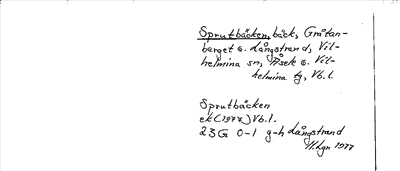 Sprutbäcken, bäck, Gråtan-
berget o. Långstrand, Vil-
helmina sn, Åsele o. Vil-
helmina tg, Vb.l.
Sprutbäcken
ek (1977) Vb.l.
23G 0-1 g-h Långstrand
1977